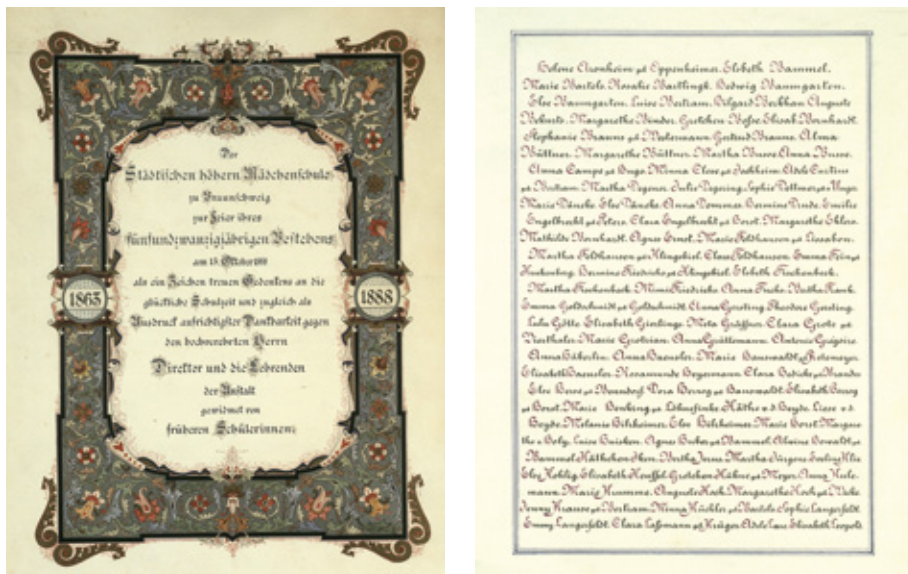 Der
Städtischen höhern Mädchenschule
zu Braunschweig
zur Feier ihres
fünfundzwanzigjährigen Bestehens
am 18. Oktober 1888
als ein Zeichen treuen Gedenkens an die
glückliche Schulzeit und zugleich als
Ausdruck aufrichtigster Dankbarkeit gegen
den hochverehrten Herrn
Direktor und die Lehrenden
der Anstalt
gewidmet von
früheren Schülerinnen.
1863
1888
Helene Aronheim geb. Oppenheimer. Elsbeth Bammel.
Marie Bartels. Rosalie Bartlingk. Hedwig Baumgarten.
Else Baumgarten. Luise Bertram. Hilgard Berkhan. Auguste
Beburts. Margarethe Binder. Gretchen Bosse. Elisab. Bornhardt.
Stephanie Brauns geb. Westermann. Gertrud Brauns. Alma
Büttner. Margarethe Büttner. Martha Busse. Anna Busse.
Anna Camps geb. Hugo. Minna Clove geb. Jochheim. Adele Curtius
geb. Bertram. Martha Degener. Julie Degering. Sophie Dettmer geb. Unger
Marie Däneke. Else Däneke. Anna Dommes. Hermine Emilie
Engelbrecht geb. Peters. Clara Engelbrecht geb. Horst. Margarethe Ehlers.
Mathilde Bornhardt. Agnes Ernst. Marie Feldhausen geb. Lissabon.
Martha Feldhausen geb. Klingebiel. Clara Feldhausen. Emma Fein geb.
Hermine Friedrichs geb. Klingebiel. Elsbeth Finckenbeck.
Martha Mimi Friedrichs Anna Fuchs. Bertha Funk.
Emma Goldschmidt geb. Goldschmidt. Anna Gersting Theodore Gersting.
Luhu Götte Elisabeth Meta Gräffner. Clara Grote geb.
Marie Grotrian. Anna Grüttemann. Antonie
Anna Häberlin. Anna Haensler. Marie Hanswaldt geb. Retemeyer.
Elisabeth Haensler. Rosamunde Heyermann Clara Hedicke geb. Brandes
Else Heros geb. Dora Herzog geb. Hanswaldt. Elisabeth Herzog
geb. Horst. Marie geb. Löhnefinke. Käthe v. d. Heyde. Liese v. d.
Heyde. Melanie Hilzheimer. Else Hilzheimer. Marie Horst. Margare
the v. Holy. Luise Huisken. Agnes geb. Hammel. Alwine
Hammel. Käthchen Bertha Martha Jürgens. Eveline
Elly Kahlig. Elisabeth Gretchen geb. Meyer. Anna
mann. Marie Krumme. Auguste Koch. Margarethe Koch geb.
Jenny Krause geb. Bertram. Minna Küchler geb. Bartels. Sophie Langerfeldt.
Emmy Langerfeldt. Clara Laßmann geb. Krüger. Adele Elisabeth Leopold